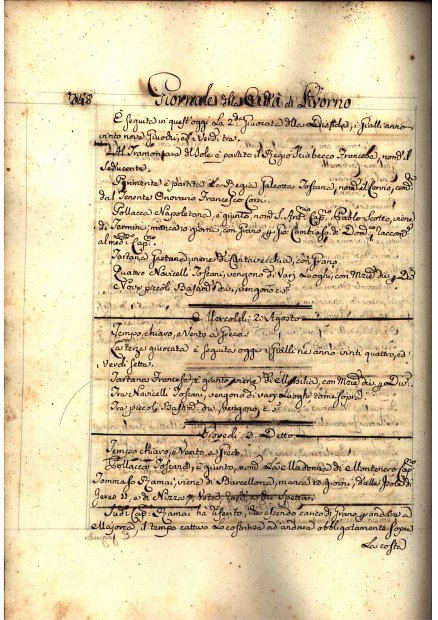 748 Giornale della Città di Livorno
È seguita in quest'oggi La 2.da Giuocata della Diasfida, i Gialli anno
vinto nove Giuochi, ed i Verdi tre.
Al Tramontare del Sole è partito il Regio Sciabecco Francese, nom.to il
Seducente.
Parimente è partita La Regia Galeotta Toscana, nom.ta il Corvio, com.ta
dal Tenente Onorano Francesco Corsi.
Pollacca Napoletana, è giunto, nom.ta S. Ant.o Cap.no Pablo Scotto, viene
di Termine, manca 10 giorni, con Grano
al med.mo Cap.no
Tartana Gaetana, viene di Civitavecchia, con Grano.
Quattro Navicelli Toscani, vengono di Varj Luoghi, con Merci div.
e Nove piccoli Bastim.ti div. vengono c. s.
Mercoledì 2 Agosto
Tempo, chiaro, e Vento a Greco.
La terza giuocata è seguita oggi i Gialli ne anno vinti quattro, ed i
Verdi sette.
Tartana Francese, è giunto, viene di Marsilia, con Merci div. p. Div.
Tre Navicelli Toscani, vengono di varj Luoghi come sopra
Tre piccoli Bastim. div. vengono, c. s.
Giovedì 3 Detto
Tempo chiaro, e Vento, a Greco
Pollacca Toscana, è giunto, nom.ta La Madonna di Montenero Cap.no
Tommaso Ramai, viene di Barcellona, manca 10 giorni, dalle Isole di
Jeres 11, e di Nizza
Il di Cap. Ramai ha riferito, che essendo carico di Grano p andare a
Majorca, il tempo cattivo Lo costrinse ad andare obbligatamente sopra
La costa